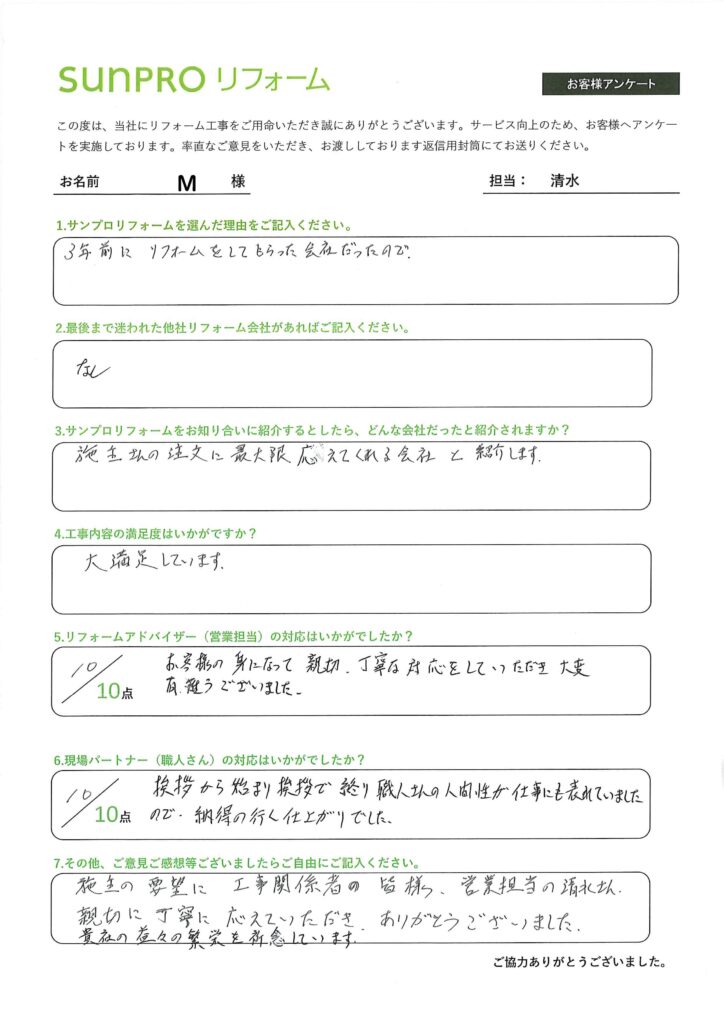 SUNPRO リフォーム
お客様アンケート
この度は、当社にリフォーム工事をご用命いただき誠にありがとうございます。サービス向上のため、お客様へアンケー
トを実施しております。率直なご意見をいただき、お渡ししております返信用封筒にてお送りください。
お名前 M 様 担当： 清水
1.サンプロリフォームを選んだ理由をご記入ください。
3年前に リフォームをしてもらった会社だったので.
2.最後まで迷われた他社リフォーム会社があればご記入ください。
なし
3.サンプロリフォームをお知り合いに紹介するとしたら、どんな会社だったと紹介されますか？
施主さんの注文に最大限応えてくれる会社 と 紹介します.
4.工事内容の満足度はいかがですか？
大満足しています.
5.リフォームアドバイザー（営業担当）の対応はいかがでしたか？
お客様の身になって 親切、丁寧な対応をしていただき 大変
10/10点
有難うございました。
6.現場パートナー（職人さん）の対応はいかがでしたか？
挨拶から始まり挨拶で終り職人さんの人間性が仕事にも表れていました
10/10点
ので、納得の行く仕上がりでした。
7.その他、ご意見ご感想等ございましたらご自由にご記入ください。
施主の要望に 工事関係者の皆様、営業担当の清水さん.
親切に丁寧に応えていただき ありがとうございました.
貴社の益々の繁栄を祈念しています.
ご協力ありがとうございました。